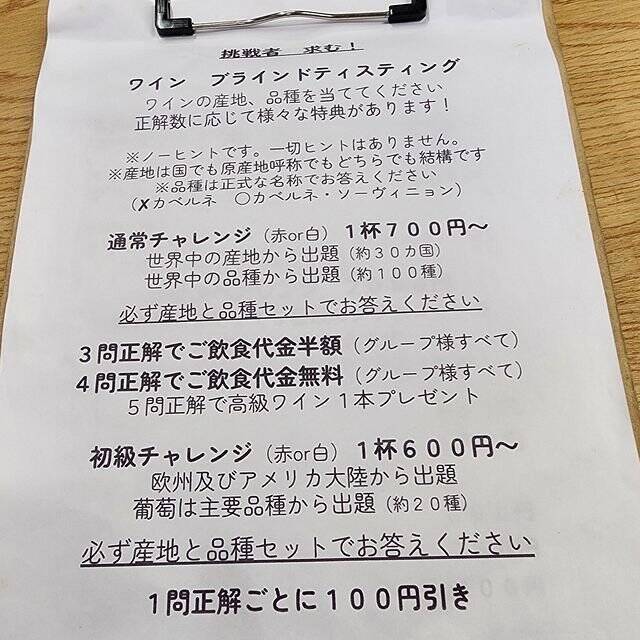 挑戦者　求む！
ワイン　ブラインドティスティング
ワインの産地、品種を当ててください
正解数に応じて様々な特典があります！
※ノーヒントです。一切ヒントはありません。
※産地は国でも原産地呼称でもどちらでも結構です
※品種は正式な名称でお答えください
（✗カベルネ　○カベルネ・ソーヴィニョン）
通常チャレンジ（赤or白）１杯７００円～
世界中の産地から出題（約３０カ国）
世界中の品種から出題（約１００種）
必ず産地と品種セットでお答えください
３問正解でご飲食代金半額（グループ様すべて）
４問正解でご飲食代金無料（グループ様すべて）
５問正解で高級ワイン１本プレゼント
初級チャレンジ（赤or白）１杯６００円～
欧州及びアメリカ大陸から出題
葡萄は主要品種から出題（約２０種）
必ず産地と品種セットでお答えください
１問正解ごとに１００円引き